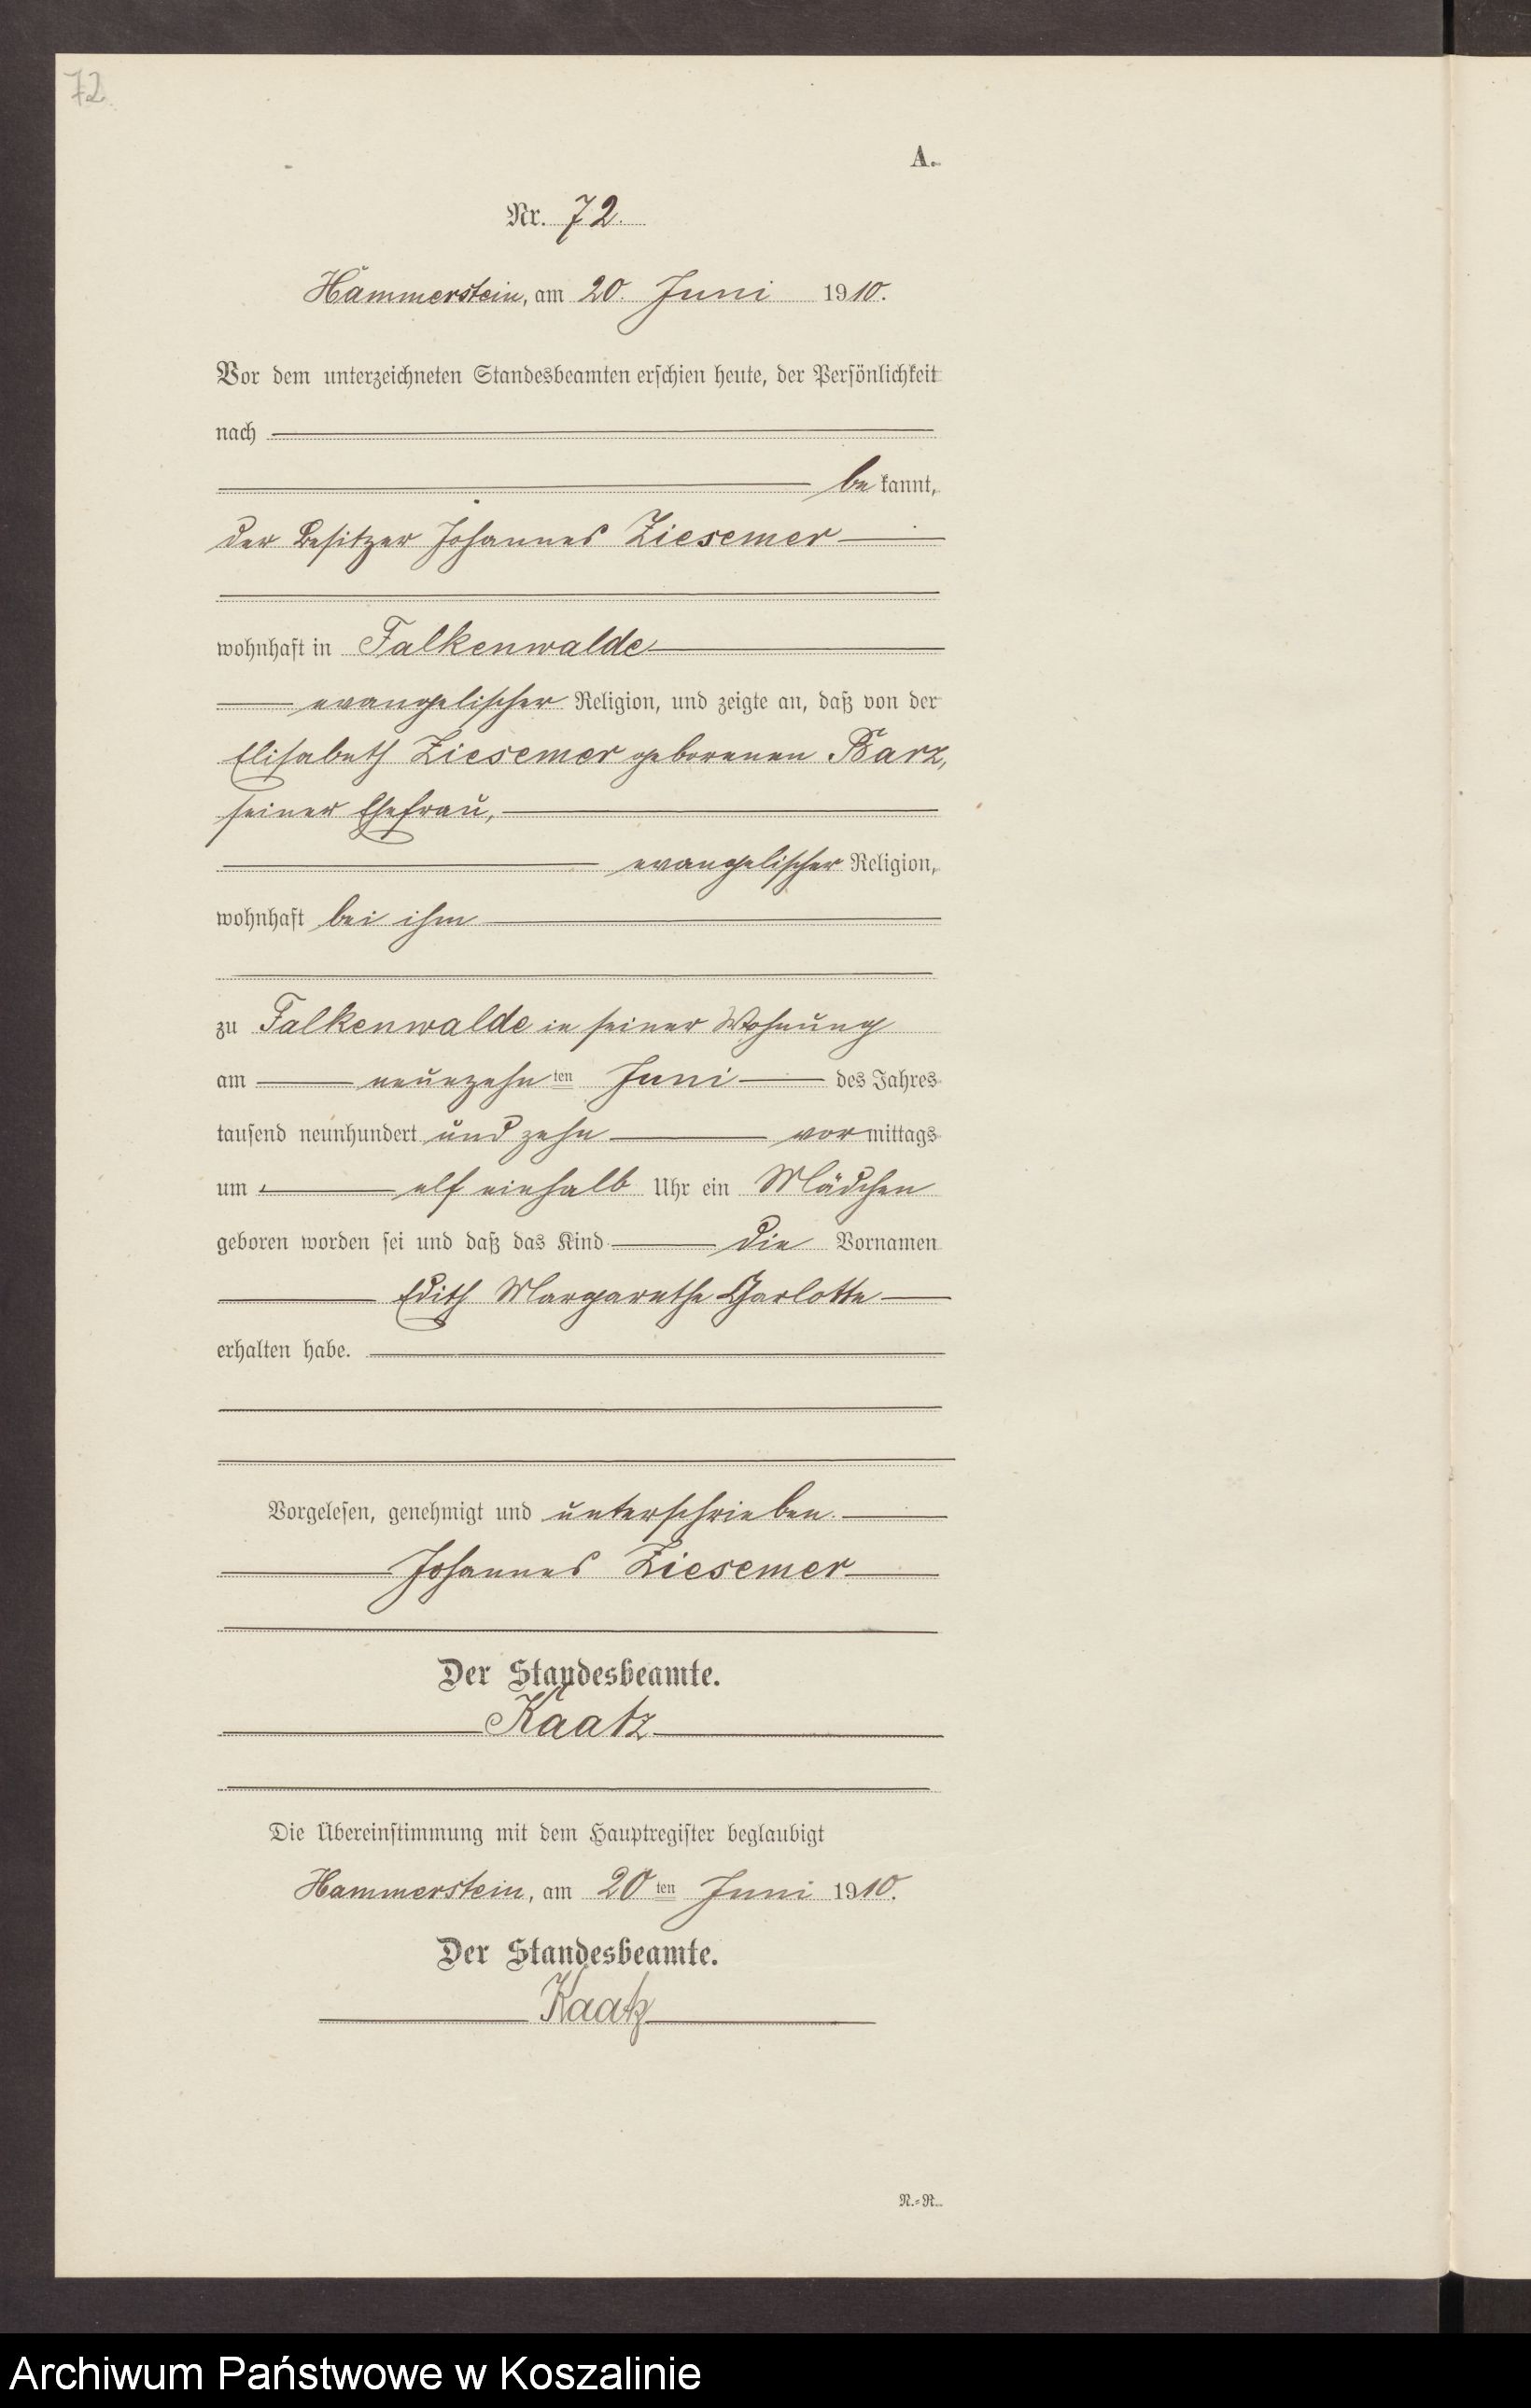 72
A.
Nr. 72.
Hammerstein, am 20. Juni 1910.
Vor dem unterzeichneten Standesbeamten erschien heute, der Persönlichkeit
nach
be kannt,
der Besitzer Johannes Ziesemer
wohnhaft in Falkenwalde
evangelischer Religion, und zeigte an, daß von der
Elisabeth Ziesemer geborenen Barz,
seiner Ehefrau,
evangelischer Religion,
wohnhaft bei ihm
zu Falkenwalde in seiner Wohnung
am neunzehn ten Juni des Jahres
tausend neunhundert und zehn vormittags
um elf einhalb Uhr ein Mädchen
geboren worden sei und daß das Kind die Vornamen
Edith Margarethe Charlotte
erhalten habe.
Vorgelesen, genehmigt und unterschrieben.
Johannes Ziesemer
Der Standesbeamte.
Kaatz
Die Übereinstimmung mit dem Hauptregister beglaubigt
Hammerstein, am 20 ten Juni 1910.
Der Standesbeamte.
Kaatz
N.-R.
Archiwum Państwowe w Koszalinie